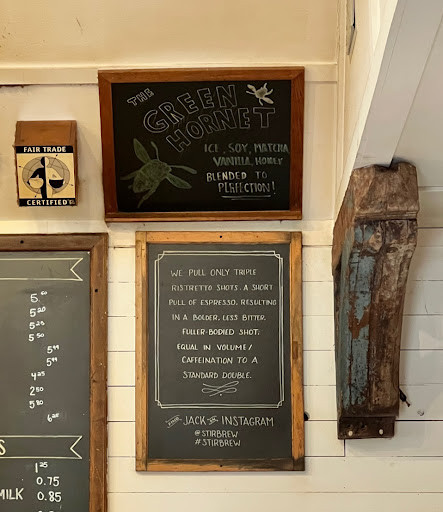 THE
GREEN
HORNET
ICE, SOY, MATCHA
VANILLA, HONEY
BLENDED TO
PERFECTION!
FAIR TRADE
CERTIFIED
WE PULL ONLY TRIPLE
RISTRETTO SHOTS. A SHORT
PULL OF ESPRESSO, RESULTING
IN A BOLDER, LESS BITTER,
FULLER-BODIED SHOT.
EQUAL IN VOLUME/
CAFFEINATION TO A
STANDARD DOUBLE.
JACK ON INSTAGRAM
@STIRBREW
#STIRBREW
5.60
5.20
5.20
5.50
5.99
5.99
4.25
2.50
5.80
6.25
S
1.25
0.75
MILK 0.85